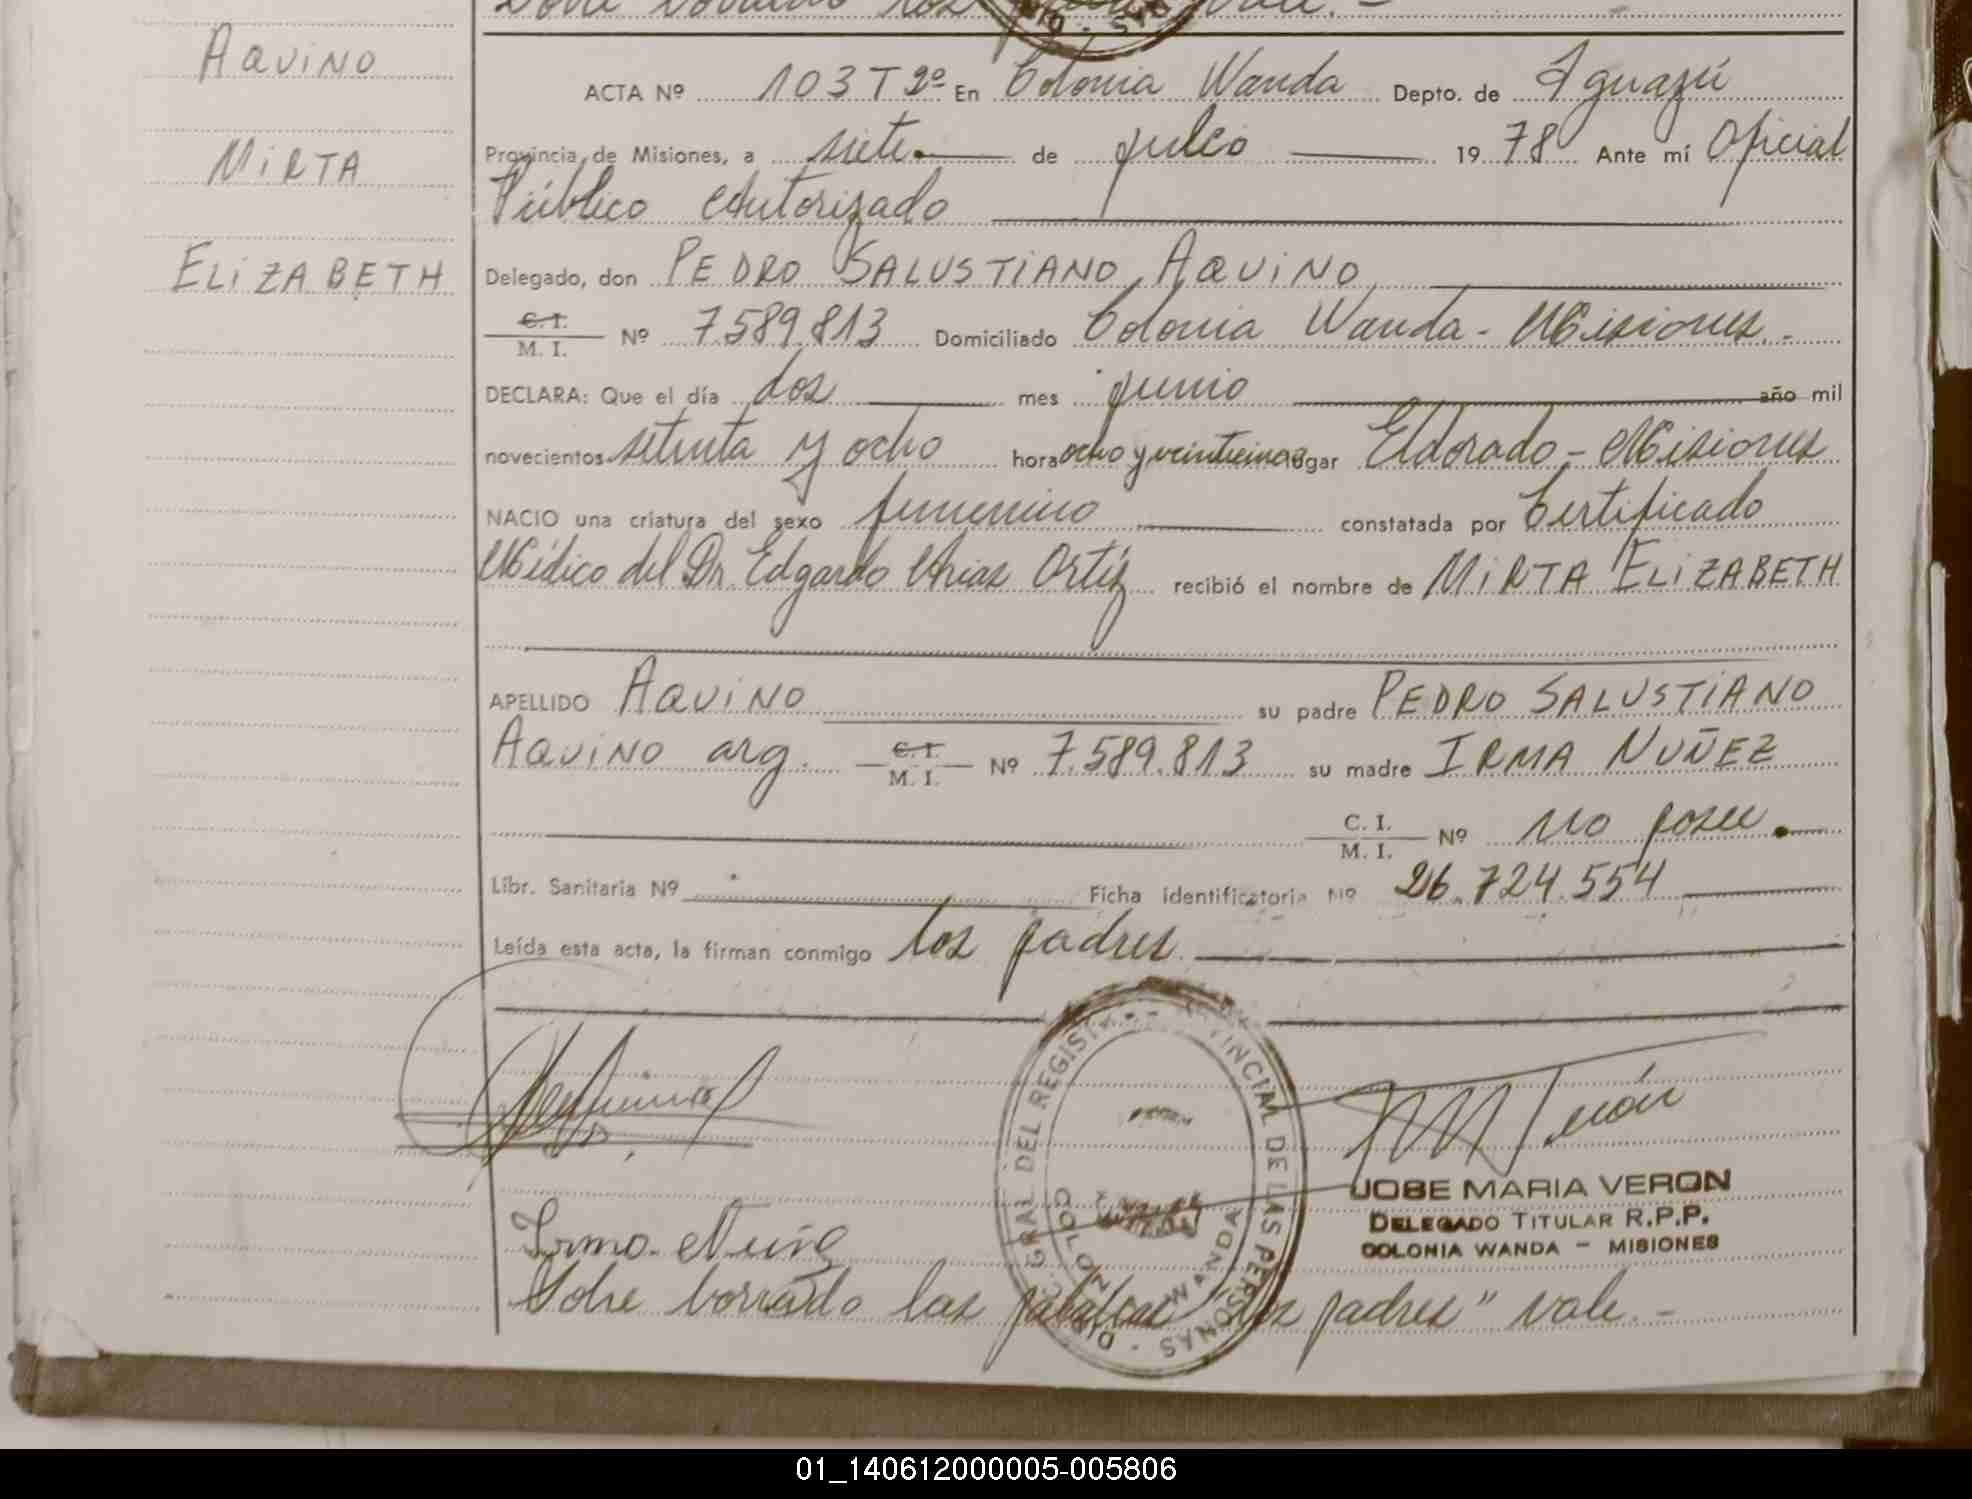 Sobre borrado los padres vale. -
AQUINO
MIRTA
ELIZABETH
ACTA Nº 103 T 2º En Colonia Wanda Depto. de Iguazú
Provincia de Misiones, a siete de julio 19 78 Ante mí Oficial
Público Autorizado
Delegado, don PEDRO SALUSTIANO AQUINO
C.I. / M. I. Nº 7589.813 Domiciliado Colonia Wanda - Misiones.-
DECLARA: Que el día dos mes junio año mil
novecientos setenta y ocho hora ocho y veinticinco lugar Eldorado - Misiones
NACIO una criatura del sexo femenino constatada por Certificado
Médico del Dr. Edgardo Arias Ortíz recibió el nombre de MIRTA ELIZABETH
APELLIDO AQUINO su padre PEDRO SALUSTIANO
AQUINO arg. C.I. / M. I. Nº 7.589.813 su madre IRMA NUÑEZ
C. I. / M. I. Nº no posee.
Libr. Sanitaria Nº Ficha identificatoria Nº 26.724.554
Leída esta acta, la firman conmigo los padres.
DIR. GRAL DEL REGISTRO PROVINCIAL DE LAS PERSONAS
COLONIA WANDA
JOSE MARIA VERON
DELEGADO TITULAR R.P.P.
COLONIA WANDA - MISIONES
Irma Nuñe
Sobre borrado las palabras "los padres" vale. -
01_140612000005-005806